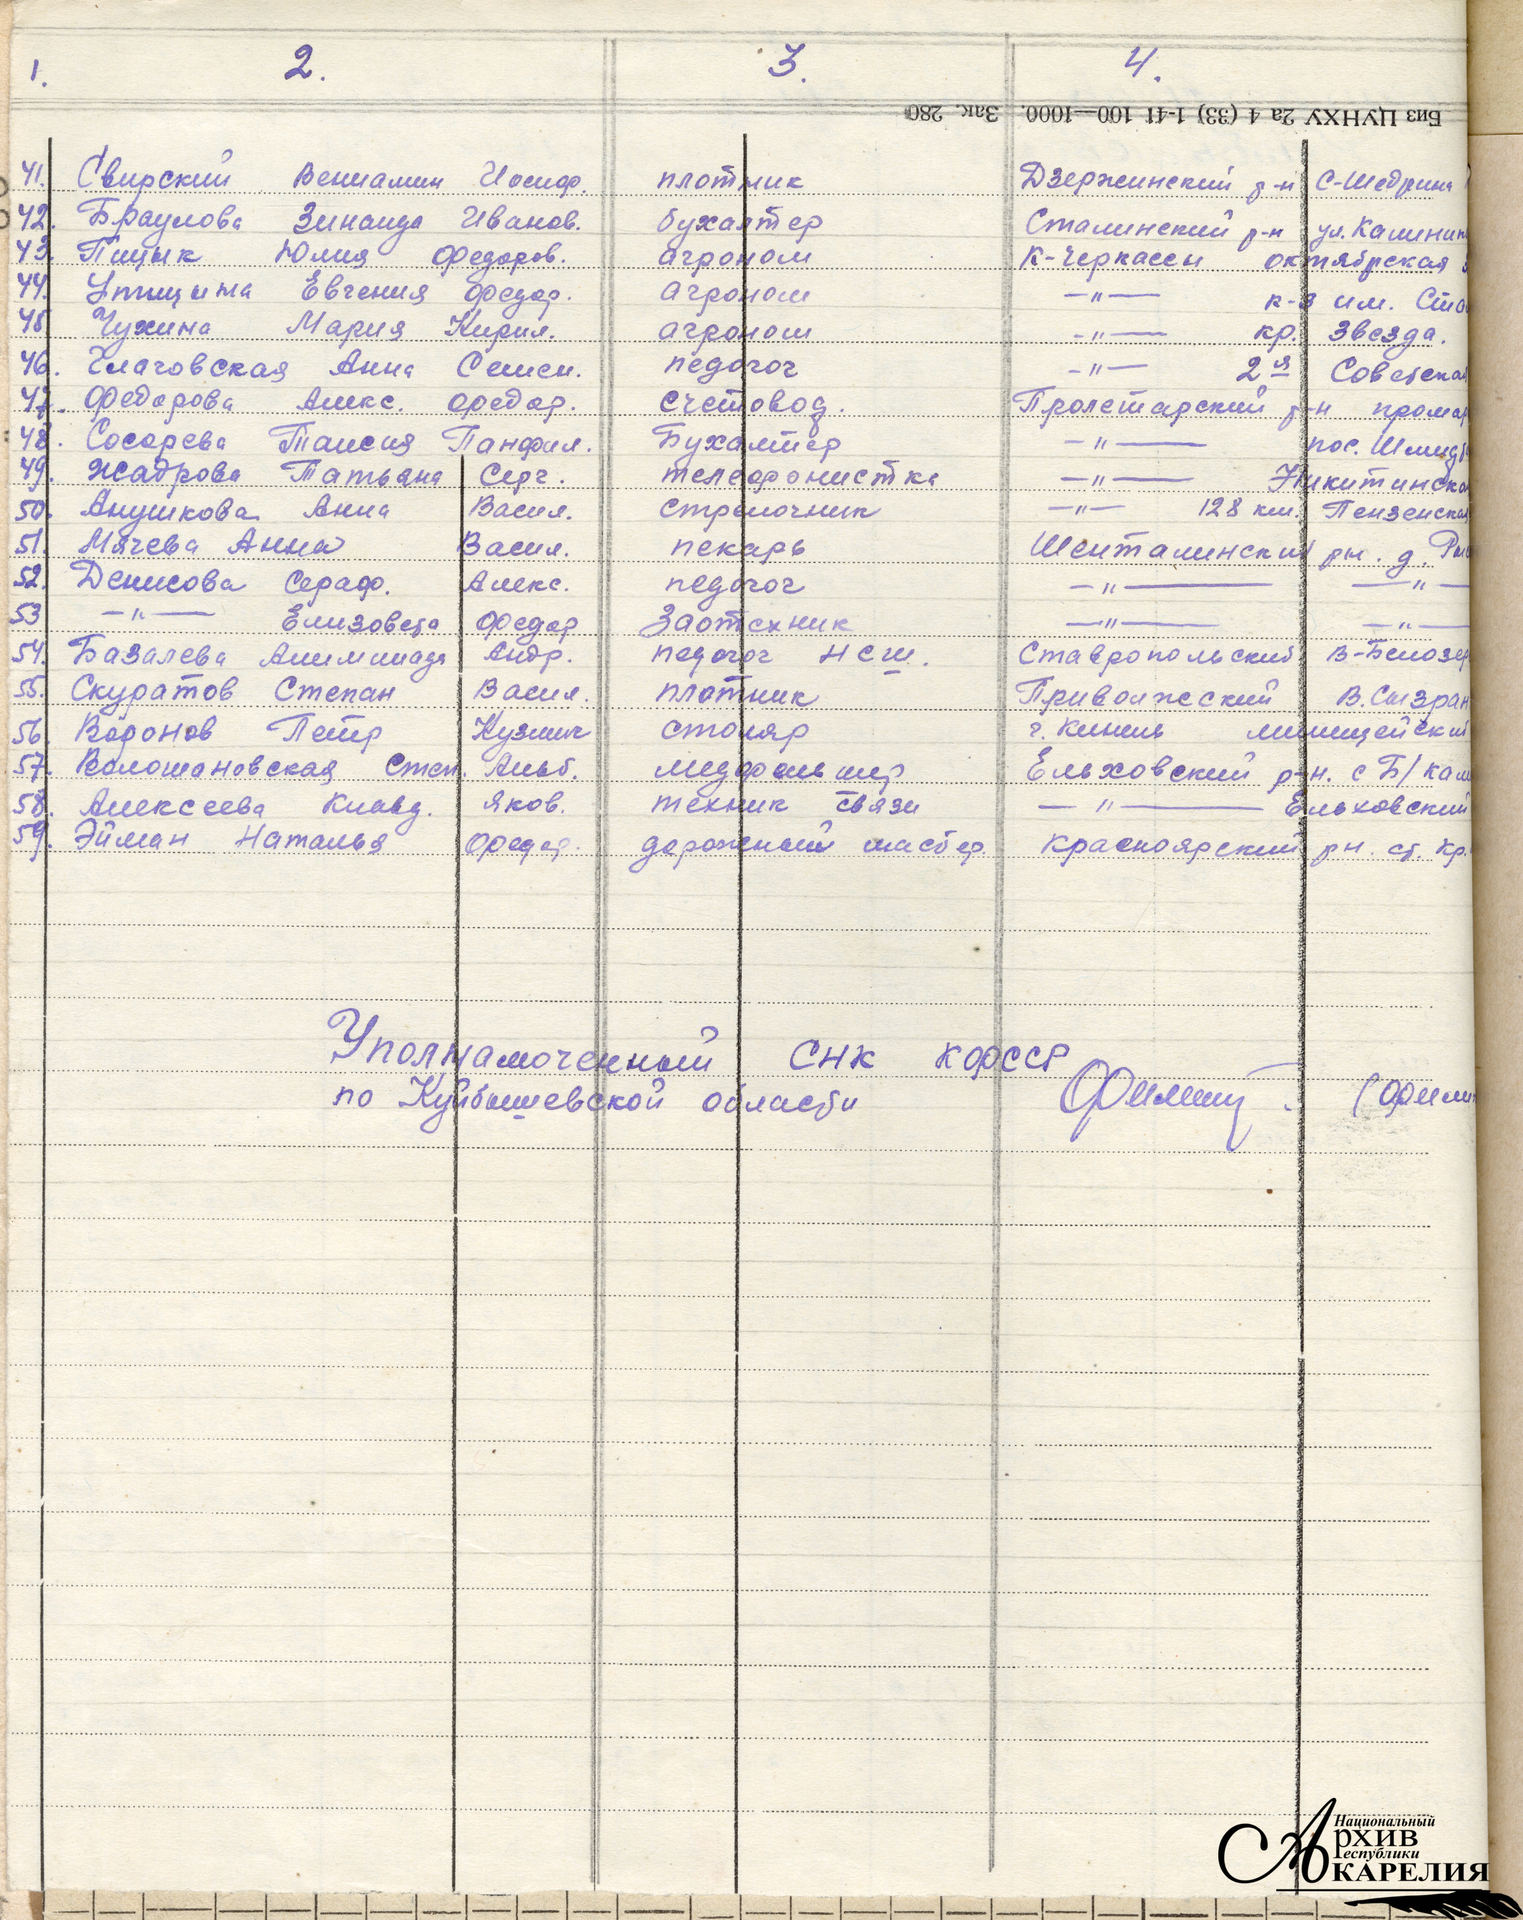 1. 2. 3. 4.
Биз ЦУНХУ 2а 4 (33) 1-41 100—1000. Зак. 280
41. Свирский Вениамин Иосиф. плотник Дзержинский р-н С-Щедрина
42. Браулова Зинаида Иванов. бухалтер Сталинский р-н ул. Калинин
43. Пицык Юлия Федоров. агроном К-Черкассы октябрская
44. Птицына Евгения Федор. агроном —"— к-з им. Ста
45. Чухина Мария Кирил. агроном —"— кр. Звезда.
46. Глаговская Анна Семен. педогог —"— 2я Советская
47. Федорова Алекс. Федор. счетовод. Пролетарский р-н промар
48. Сосорева Таисия Панфил. Бухалтер —"— пос. Шмидт
49. Жадрова Татьяна Серг. телефонистка —"— Никитинска
50. Анушкова Анна Васил. стрелочник —"— 128 км. Пензенская
51. Мячева Анна Васил. пекарь Шенталинский рн. д.
52. Денисова Сераф. Алекс. педогог —"— —"—
53 —"— Елизовета Федор Заотехник —"— —"—
54. Базалева Алимпиада Андр. педогог НСШ. Ставропольский В-Белозер
55. Скуратов Степан Васил. плотник Приволжский В. Сызран
56. Воронов Петр Кузмич столяр г. Кинель милицейский
57. Волошановская Степ. Альб. медфельшер Елховский р-н. с Б/Кам
58. Алексеева Клавд. Яков. техник связи —"— Елховский
59. Эйман Наталья Федор. дорожный мастер. Красноярский рн. ст. Кр.
Уполнамоченный СНК КФССР
по Куйбышевской области Филипп (Филип
Национальный
Архив
Республики
КАРЕЛИЯ